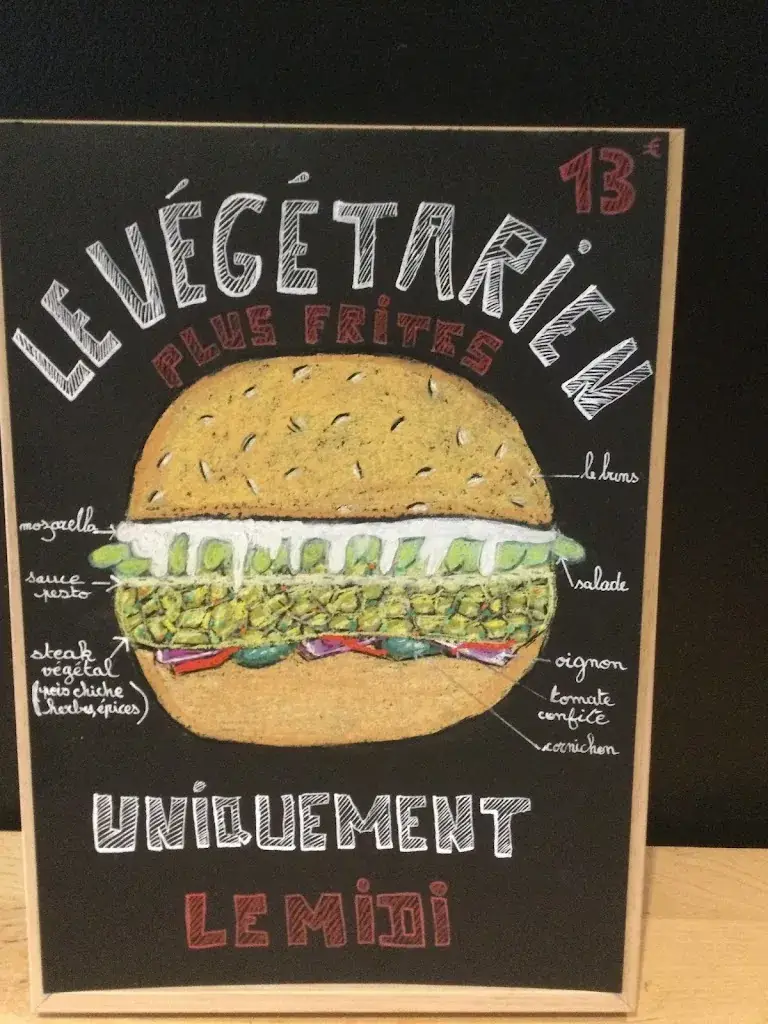 13 €
LE VÉGÉTARIEN
PLUS FRITES
le buns
mozarella
sauce
pesto
salade
steak
végétal
(pois chiche
herbes, épices)
oignon
tomate
confite
cornichon
UNIQUEMENT
LE MIDI